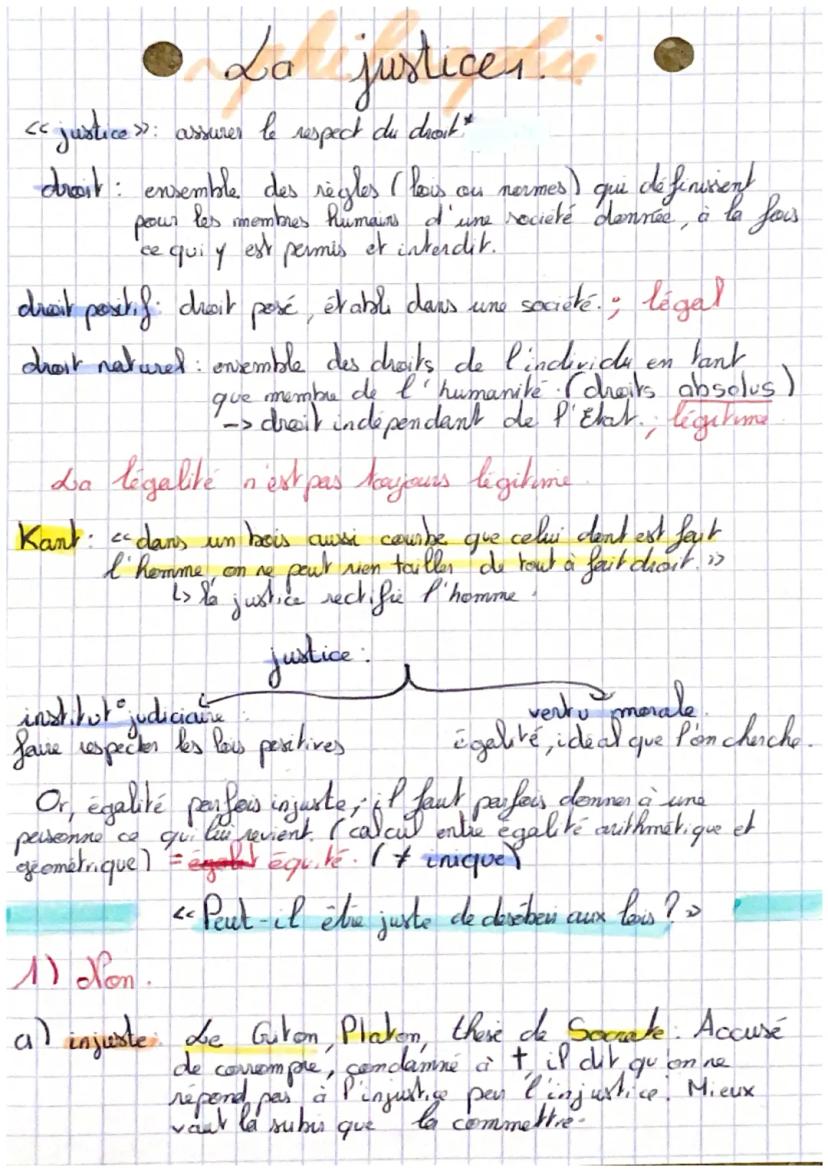 philosophie
La justice.
<< justice >> : assurer le respect du droit*
droit : ensemble des règles (lois ou normes) qui définissent
pour les membres humains d'une société donnée, à la fois
ce qui y est permis et interdit.
droit positif : droit posé, établi dans une société. ; légal
droit naturel : ensemble des droits de l'individu en tant
que membre de l'humanité. (droits absolus)
-> droit indépendant de l'Etat. ; légitime
La légalité n'est pas toujours légitime.
Kant : << dans un bois aussi courbe que celui dont est fait
l'homme on ne peut rien tailler de tout à fait droit. >>
↳ la justice rectifie l'homme.
justice :
institut° judiciaire :
vertu morale.
faire respecter les lois positives
égalité, idéal que l'on cherche.
Or, égalité parfois injuste, il faut parfois donner à une
personne ce qui lui revient. (calcul entre égalité arithmétique et
géométrique) = équité. (≠ inique)
<< Peut-il être juste de désobéir aux lois ? >>
1) Non.
a) injuste : Le Criton, Platon, thèse de Socrate : Accusé
de corrompre, condamné à †, il dit qu'on ne
répond pas à l'injustice par l'injustice. Mieux
vaut la subir que la commettre.